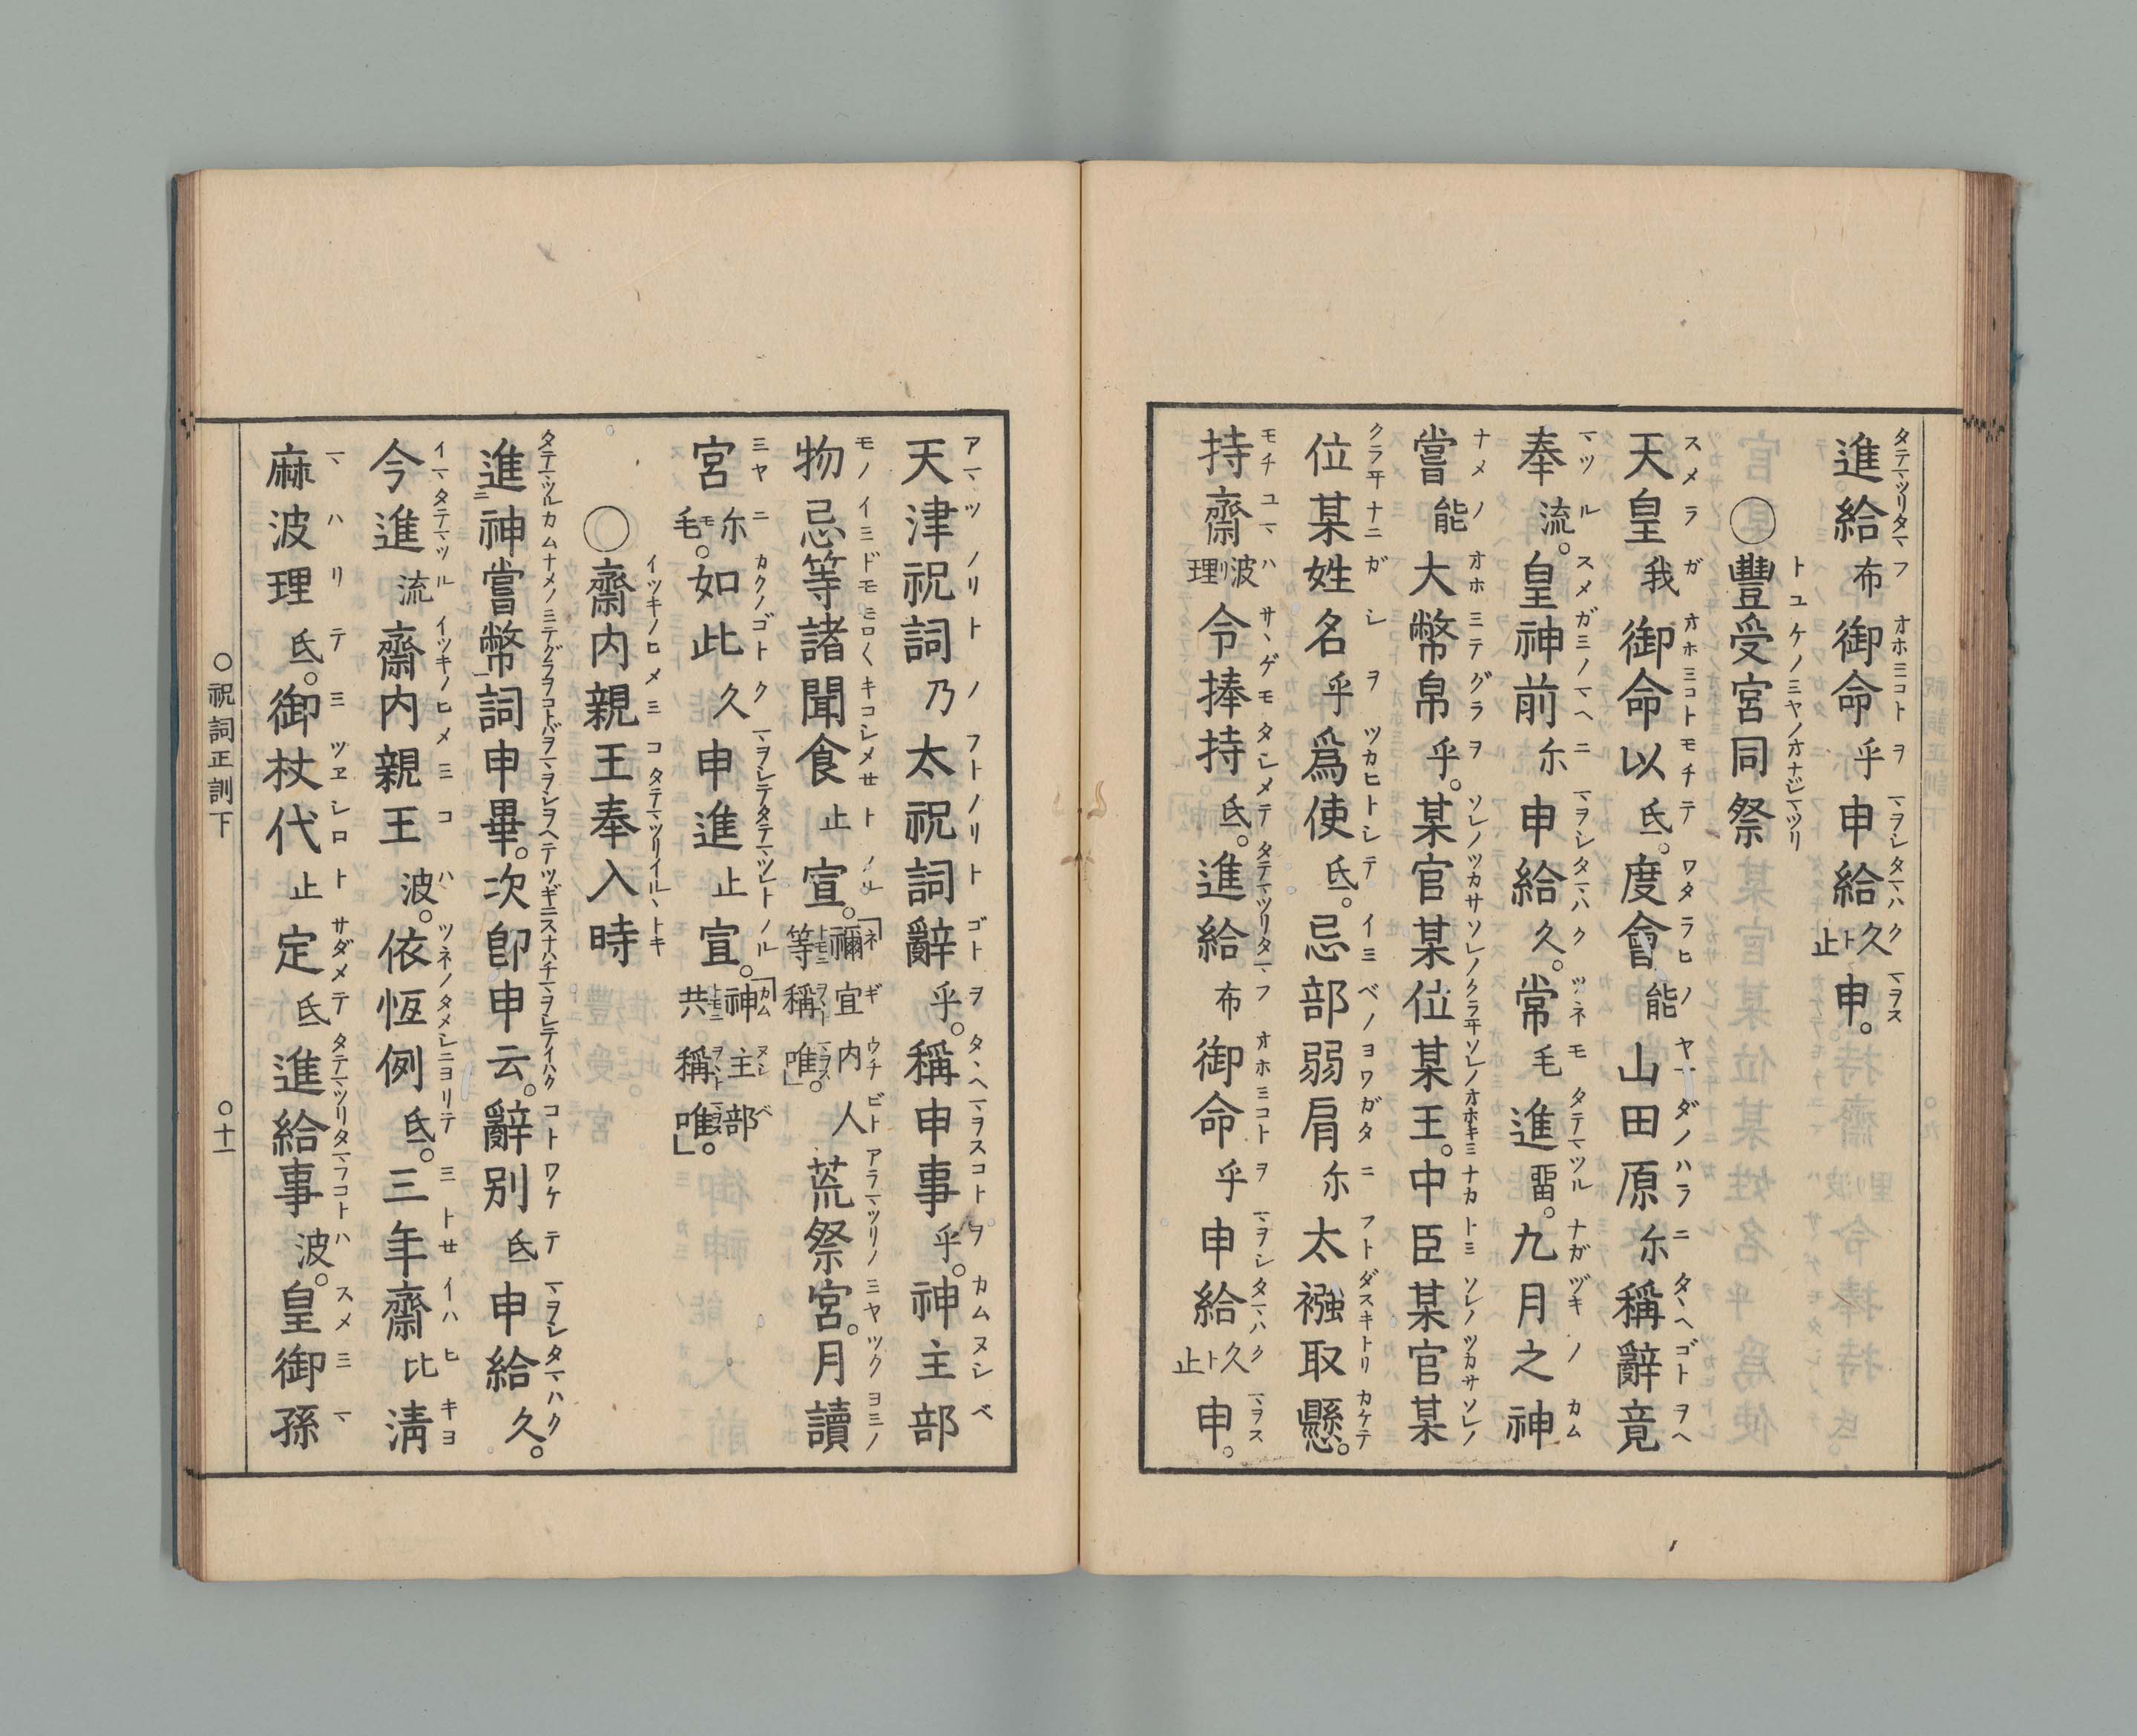 進給布御命乎申給久止申。
○豐受宮同祭
天皇我御命以氐。度會能山田原尓稱辭竟
奉流。皇神前尓申給久。常毛進畱。九月之神
嘗能大幣帛乎。某官某位某王。中臣某官某
位某姓名乎爲使氐。忌部弱肩尓太襁取懸。
持齋波理令捧持氐。進給布御命乎申給久止申。
天津祝詞乃太祝詞辭乎。稱申事乎。神主部
物忌等諸聞食止宣。「禰宜内人等稱唯」。荒祭宮。月讀
宮尓毛。如此久申進止宣。「神主部共稱唯」。
○齋内親王奉入時
進神嘗幣詞申畢。次卽申云。辭別氐申給久。
今進流齋内親王波。依恆例氐。三年齋比淸
麻波理氐。御杖代止定氐進給事波。皇御孫
○祝詞正訓下 ○十一